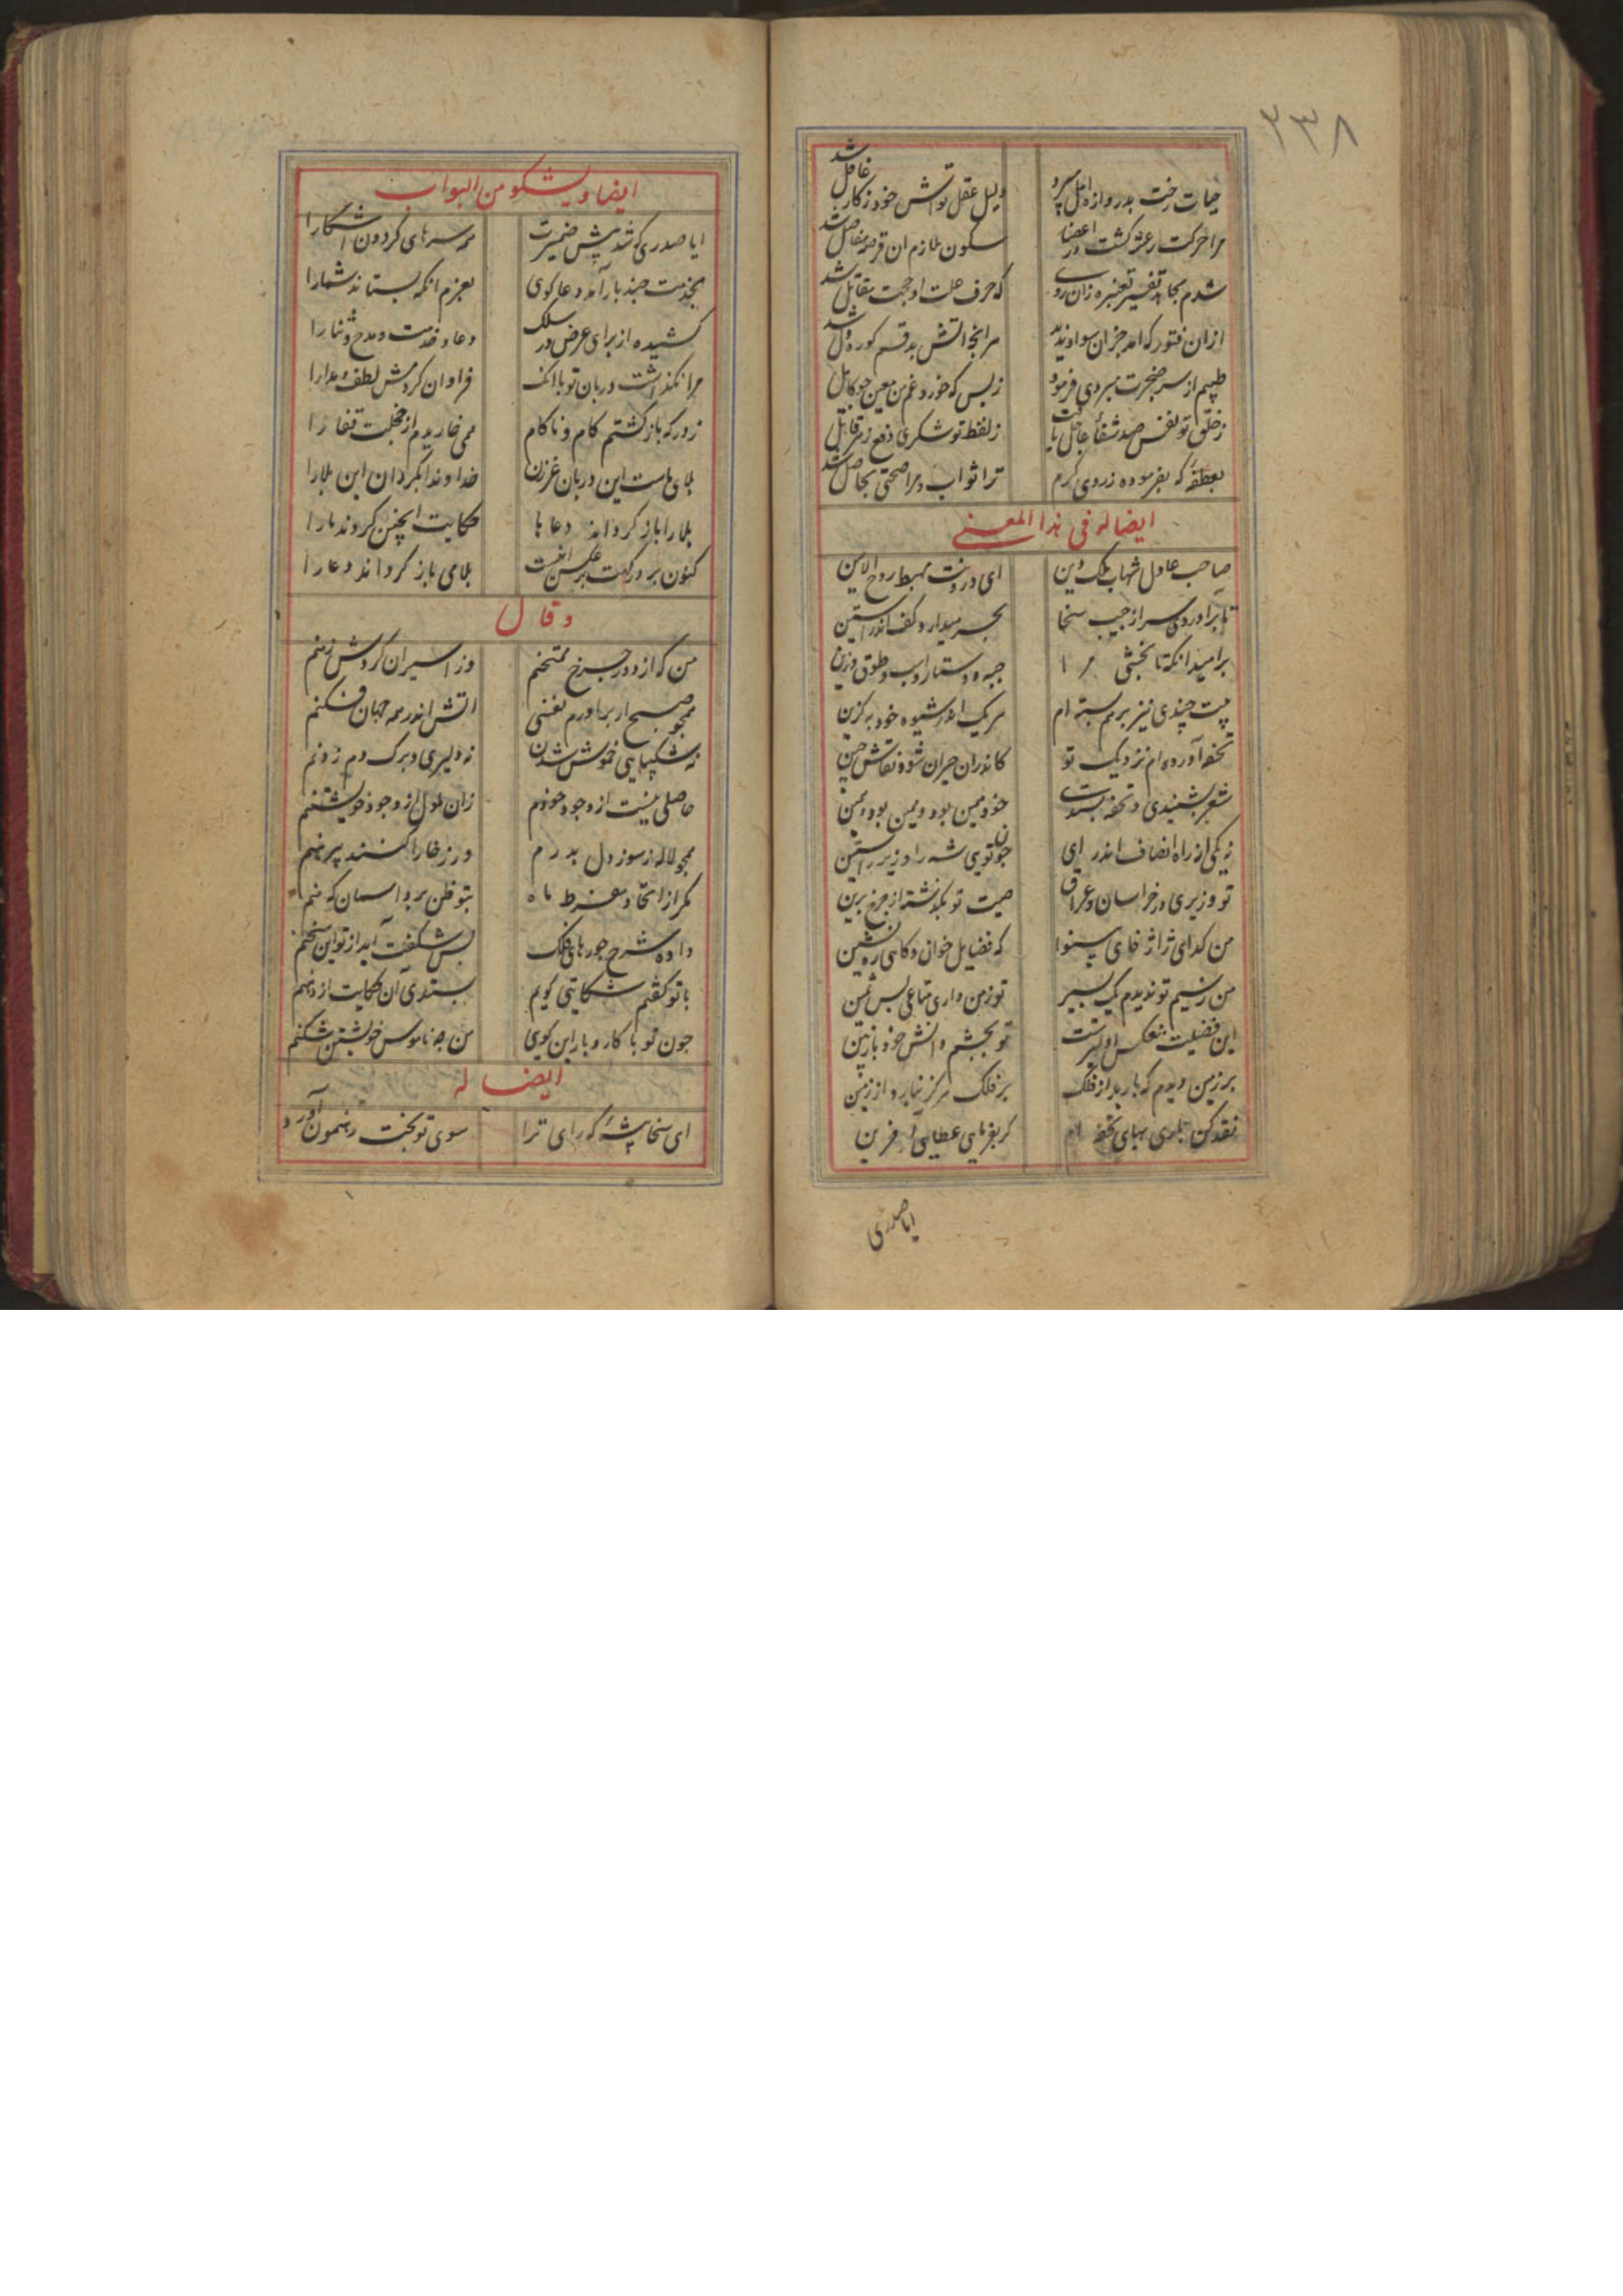 ۲۳۸
حیات رخت بدروازه اجل سپرد دلیل عقل تواش خود زکار غافل شد
مرا حرکت رعشه گشت در اعضا سکون ملازم ان قرصه مفاصل شد
شدم بجا تفسیر زان روی که حرف علت او حجت مقابل شد
ازان فتور که امد بدید مرا اتش بدو قسم کوره دل شد
طبیبم از سر ضجرت فرمود زبس که خورد غم من معین جو کابل شد
زخلق تو نفس صد شفا عاجل یافت زلفظ تو شکری دفع زهر قاتل شد
بعطفه که بفرموده زروی کرم ترا ثواب و مرا صحتی بحاصل شد
ایضا له فی هذا المعنی
صاحب عادل شهاب ملک و دین ای درونت مهبط روح الامین
تا براوردی سر از جیب سخا بحر میدارد کف اندر استین
بر امید انکه تا بخشی مرا جبه و دستار و اسب و طوق و زین
بیت چندی نیز بر هم بسته ام هر یک اندر شیوه خود به گزین
تحفه آورده ام نزدیک تو کاندران حیران شود نقاش چین
شعر بشنیدی و تحفه بستدی خود همین بود و همین بود و همین
نیکی از راه انصاف اندر ای چون تویی شه را وزیر راستین
تو وزیری در خراسان و عراق صیت تو بگذشته از چرخ برین
من گدای ژاژ خای بینوا که فضایل خوانی و گاهی ره نشین
من ز سیم تو ندیدم یک پشیز تو ز من داری متاعی بس ثمین
این فضیلت منعکس اولیترست تو بچشم دانش خود باز بین
بر زمین دیدم که بارید از فلک بر فلک هرگز نبارد از زمین
نقد کن باری بهای تحفه ام گر بفرمایی عطایی افرین
ایا صدری
ایضا و یشکو من البواب
ایا صدری که شد پیش ضمیرت همه سرهای گردون اشکارا
بخدمت چند بار آمد دعاگوی بعزم انکه بستاند شما را
کشیده از برای عرض در سلک دعا و خدمت و مدح و ثنا را
مرا نگذاشت دربان تو با انک فراوان کردمش لطف و مدارا
ز درگه بازگشتم کام و ناکام همی خاریدم از خجلت قفا را
بلایی هست این دربان غرزن خداوندا بگردان این بلا را
بلا را باز گرداند دعاها حکایت اینچنین کردند ما را
کنون بر درگهت بر عکس انست بلا می باز گرداند دعا را
و قال
من که از دور چرخ ممتحنم وز اسیران گردش زمنم
همچو صبح ار براورم نفسی اتش اندر همه جهان فکنم
نه شکیبایی خموش شدن نه دلیری و برگ دم زدنم
حاصلی نیست از وجود خودم زان ملول از وجود خویشتنم
همچو لاله ز سوز دل بدرم ور ز خارا کنند پیرهنم
مگر از اتحاد مفرط ما بتو ظن برد اسمان که منم
داده شرح جورهای فلک بس شگفت آید از تو این سخنم
با تو گفتم شکایتی گویم بستدی آن حکایت از دهنم
چون تو با کار و بار این گویی من چه ناموس خویشتن شکنم
ایضا له
ای سخا پیشه که رای ترا سوی تو بخت رهنمون آورد